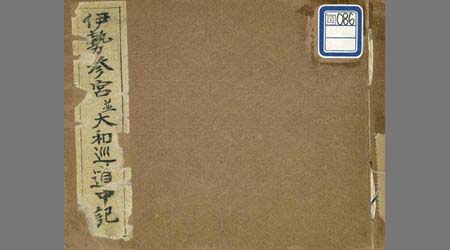 伊勢参宮並大和巡道中記
086